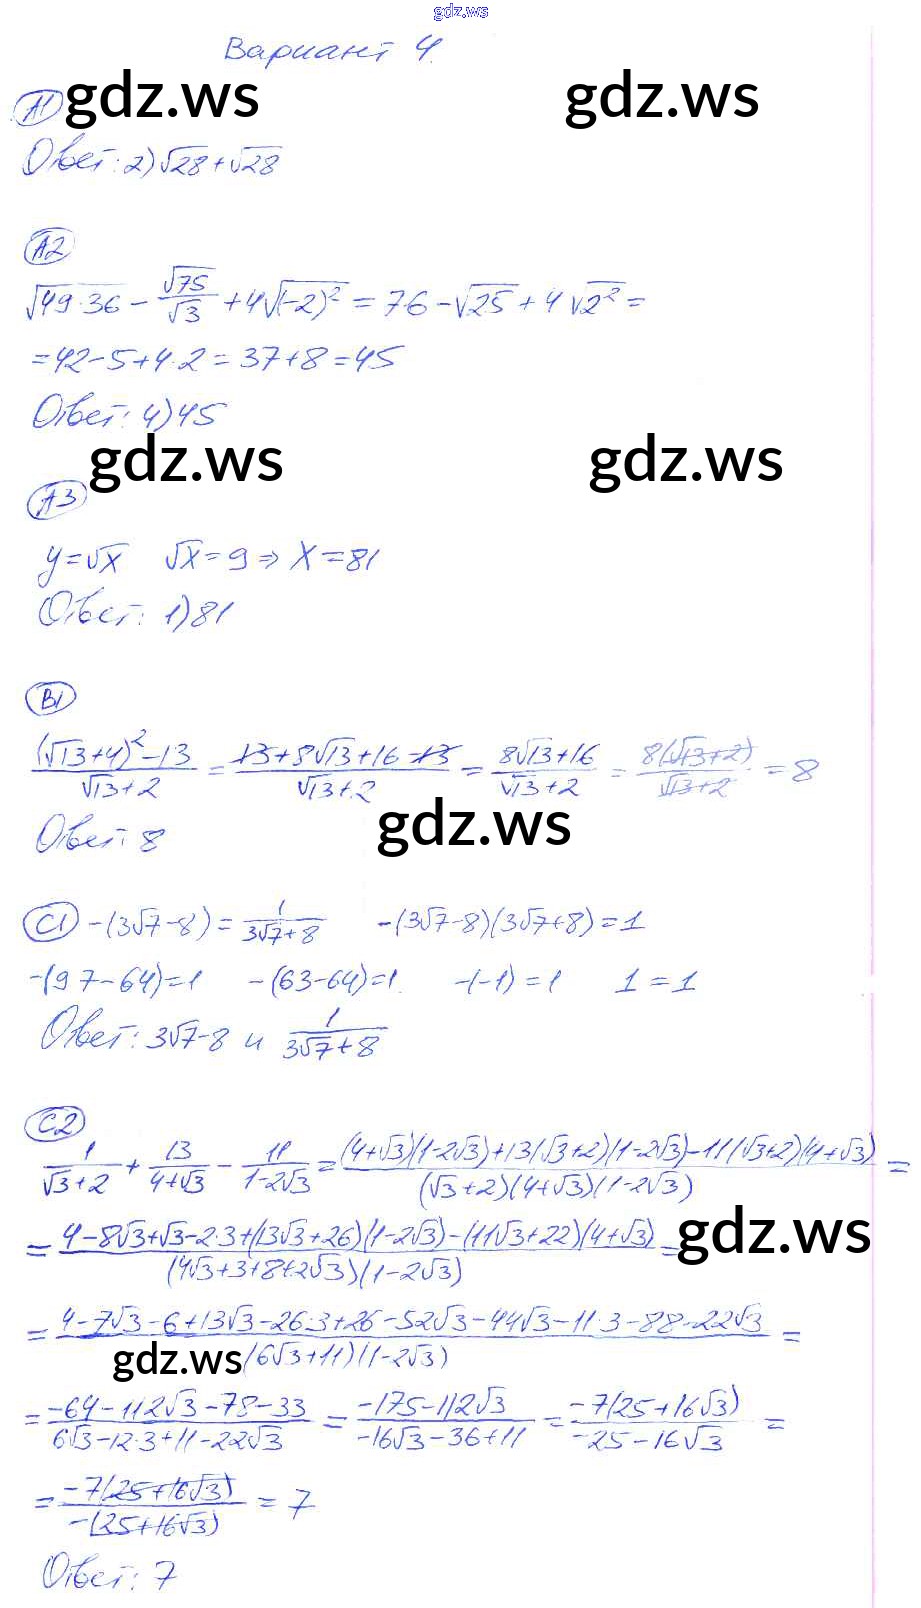 gdz.ws
Вариант 4.
А1 gdz.ws gdz.ws
Ответ: 2) √28+√28
А2
√(49·36) − √75/√3 + 4√((−2)²) = 7·6 − √25 + 4√(2²) =
= 42−5+4·2 = 37+8 = 45
Ответ: 4) 45
gdz.ws gdz.ws
А3
y=√x √x=9 ⇒ x=81
Ответ: 1) 81
В1
((√13+4)²−13)/(√13+2) = (13+8√13+16−13)/(√13+2) = (8√13+16)/(√13+2) = 8(√13+2)/(√13+2) = 8
gdz.ws
Ответ: 8
С1 −(3√7−8) = 1/(3√7+8) −(3√7−8)(3√7+8)=1
−(9·7−64)=1 −(63−64)=1. −(−1)=1 1=1
Ответ: 3√7−8 и 1/(3√7+8)
С2
1/(√3+2) + 13/(4+√3) − 11/(1−2√3) = ((4+√3)(1−2√3)+13(√3+2)(1−2√3)−11(√3+2)(4+√3))/((√3+2)(4+√3)(1−2√3)) =
gdz.ws
= (4−8√3+√3−2·3+(13√3+26)(1−2√3)−(11√3+22)(4+√3))/((4√3+3+8+2√3)(1−2√3)) =
= (4−7√3−6+13√3−26·3+26−52√3−44√3−11·3−88−22√3)/((6√3+11)(1−2√3)) =
gdz.ws
= (−64−112√3−78−33)/(6√3−12·3+11−22√3) = (−175−112√3)/(−16√3−36+11) = −7(25+16√3)/(−25−16√3) =
= −7(25+16√3)/(−(25+16√3)) = 7
Ответ: 7